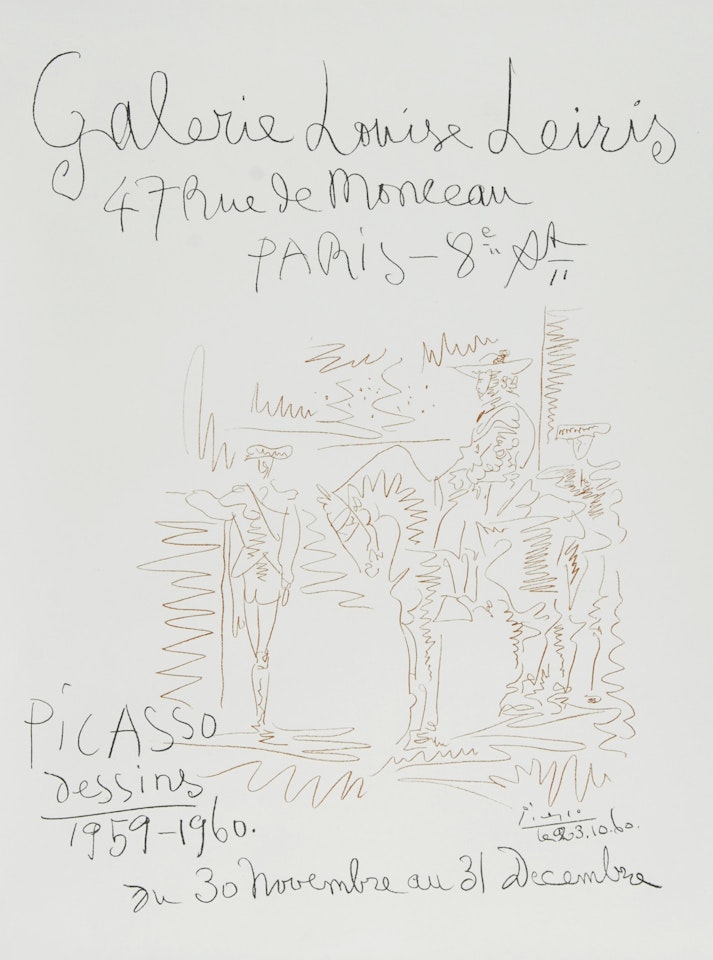 Galerie Louise Leiris
47 Rue de Monceau
PARIS – 8e
PiCASSO
dessins
1959–1960.
23.10.60.
du 30 Novembre au 31 Decembre